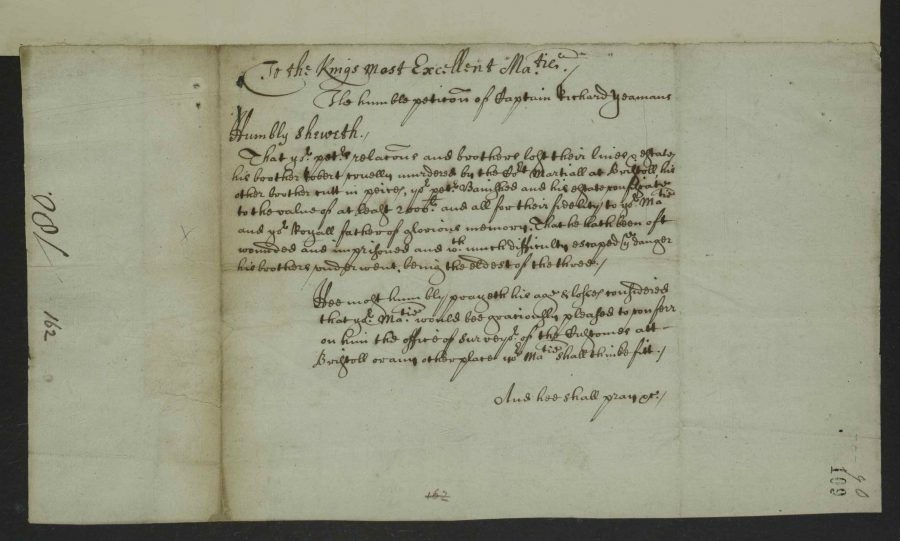 To the Kings most Excellent Ma:tie:/
The humble peticon of Captain Richard Yeamans
Humbly sheweth./
That yor. petrs. relacons and brothers lost their lives & estates
his brother Robert cruelly murdered by the Cort Martiall at Bristoll his
other brother cutt in peices, yor. petr. Banished and his estate confiscate
to the value of at least 2000li. and all for their fidelity to yor. Matie
and yor. Royall father of glorious memory. That he hath been oft
wounded and imprisoned and wth. much difficulty escaped ye danger
his brothers underwent, being the eldest of the three./
Hee most humbly prayeth his age & losses considered
that yor. Matie. would bee graciously pleased to conferr
on him the office of Surveyor. of the Customes att
Bristoll or any other place yor. Matie shall thinke fitt./
And hee shall pray &c./
162
162
109
90